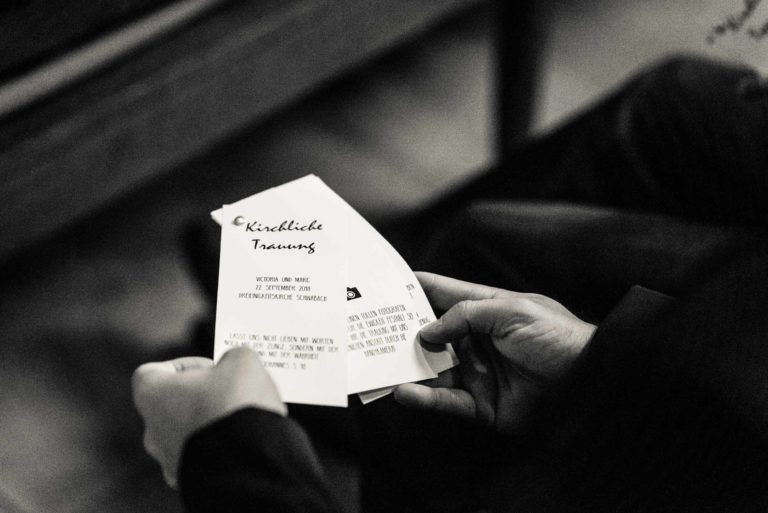 Kirchliche
Trauung
VICTORIA UND MARC
22. SEPTEMBER 2018
DREIEINIGKEITSKIRCHE SCHWABACH
LASST UNS NICHT LIEBEN MIT WORTEN
NOCH MIT DER ZUNGE, SONDERN MIT DER
UND MIT DER WAHRHEIT
JOHANNES 3, 18
EINEN TOLLEN FOTOGRAFEN
DIE EWIGKEIT FESTHÄLT. SO
DIE TRAUUNG MIT UNS
ANSTATT DURCH DIE